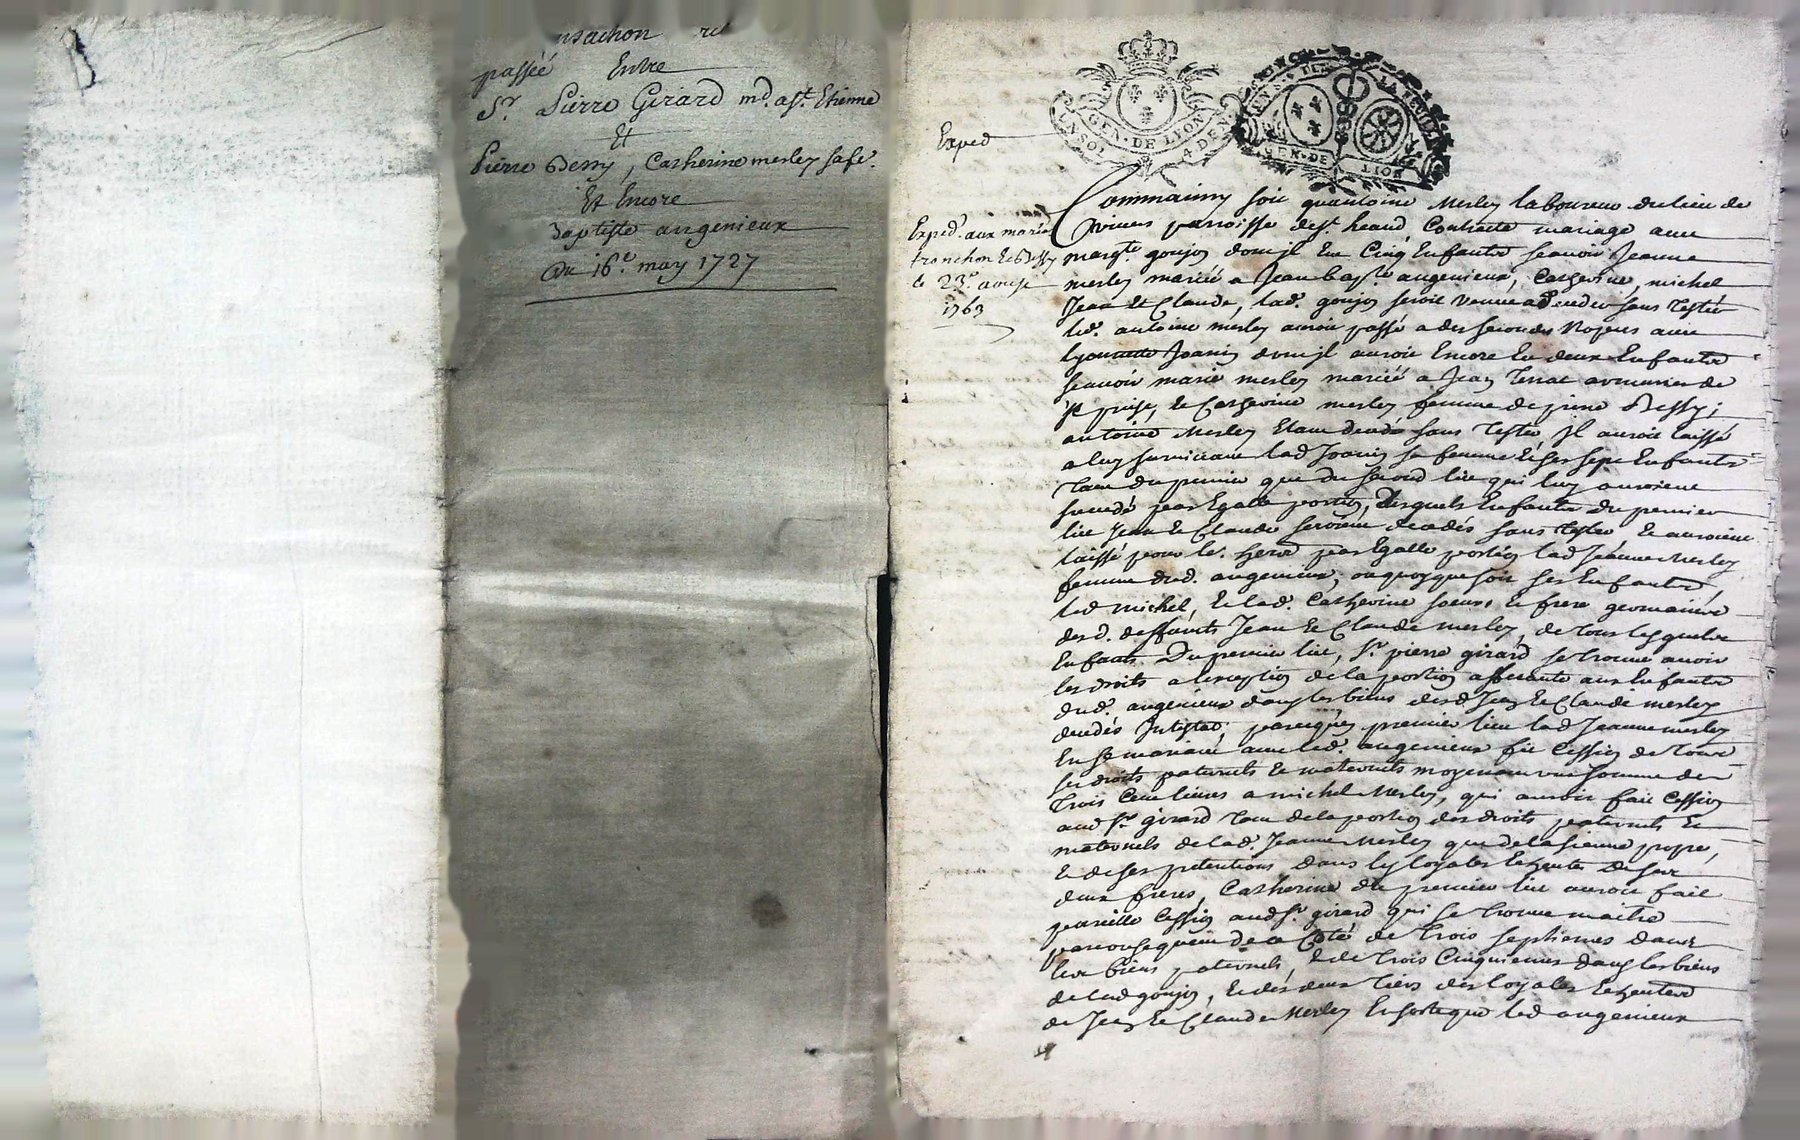 passée Entre
Sr. Pierre Girard md. a st. Etienne
Et
Pierre Bessy, Catherine merley sa fe.
Et Encore
Baptiste angenieux
Du 16e. may 1727
GEN. DE LYON
GEN. DE LION
Exped
Exped. aux mariés
tronchon et Bessy
le 23e. aoust
1763
Comm'ainsy soit qu'antoine Merley laboureur du lieu de
parroisse de st. heand Contracta mariage avec
margte. goujon dont jl Eut Cinq Enfants scavoir Jeanne
merley mariée a Jean bapte. angenieux, Catherine, michel
Jean Et Claude, lad. goujon seroit venue a deceder sans Tester
led. antoine merley auroit passé a des secondes Nopces avec
Lyonnette Joanin dont jl auroit Encore Eu deux Enfants
scavoir marie merley mariée a Jean Terrat armurier de
st. priest, et Catherine merley femme de pierre Bessy;
antoine Merley Etant decedé sans Tester, Jl auroit laissé
a luy survivant lad Joanin sa femme et ses sept Enfants
tant du premier que du second lit qui luy auroient
succedé par Egalle portion, desquels Enfants du premier
lit Jean et Claude seroient decedés sans tester et auroient
laissé pour le. par Egalle portion lad Jeanne Merley
femme dud. angenieux, ou quoyque soit ses Enfants
led michel, et lad. Catherine soeurs et frere germains
desd. deffunts Jean et Claude merley, de tous lesquels
Enfants Du premier lit, sr. pierre girard se trouve avoir
les droits a l'exception de la portion afferante aux Enfants
dud. angenieux dans les biens desd Jean et Claude merley
decedés Intestat, premier lieu lad Jeanne merley
En se mariant avec led. angenieux fit Cession de tous
ses droits paternels et maternels moyenant une somme de
trois Cent livres a michel Merley, qui auroit fait Cession
aud Sr. girard tant de la portion des droits paternels et
maternels de lad. Jeanne Merley que de la sienne propre,
et de ses pretentions dans les loyales Echeutes de ses
deux freres, Catherine du premier lit auroit fait
pareille Cession aud Sr. girard qui se trouve maitre
par consequent de ce Coté de trois septiemes dans
les biens paternels, et de trois Cinquiemes dans les biens
de lad goujon, et des deux tiers des loyales Echeutes
de Jean et Claude Merley En sorte que led angenieux